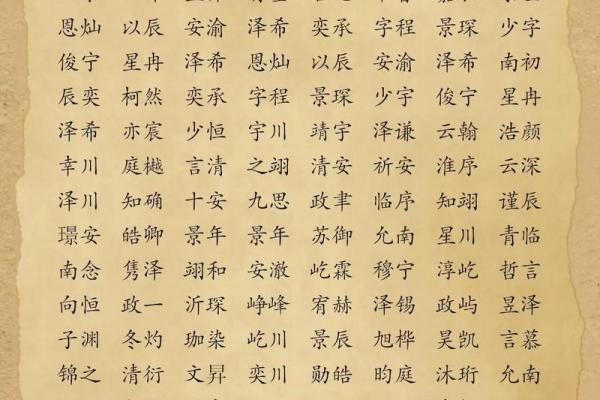 恩灿 以辰 安渝 泽希 奕承 字程 景琛 少字
俊宁 星冉 泽希 恩灿 以辰 安渝 泽希 南初
辰奕 柯然 奕承 字程 景琛 少宇 俊宁 星冉
泽希 亦宸 少恒 宇川 靖宇 泽谦 云翰 浩颜
幸川 庭樾 言清 之翊 清安 祈安 淮序 云深
泽川 知确 十安 九思 政聿 临序 知翊 谨辰
璟安 皓卿 景年 景年 苏御 允南 星川 青临
南念 隽泽 翊和 安澈 屹霖 穆宁 淳屹 哲言
向恒 政一 沂琛 峥峰 宥赫 泽锡 政屿 昱泽
子渊 冬灼 珈染 屹川 景辰 旭桦 昊凯 言慕
锦之 清衍 文昇 奕川 勋皓 昀庭 沐珩 允南